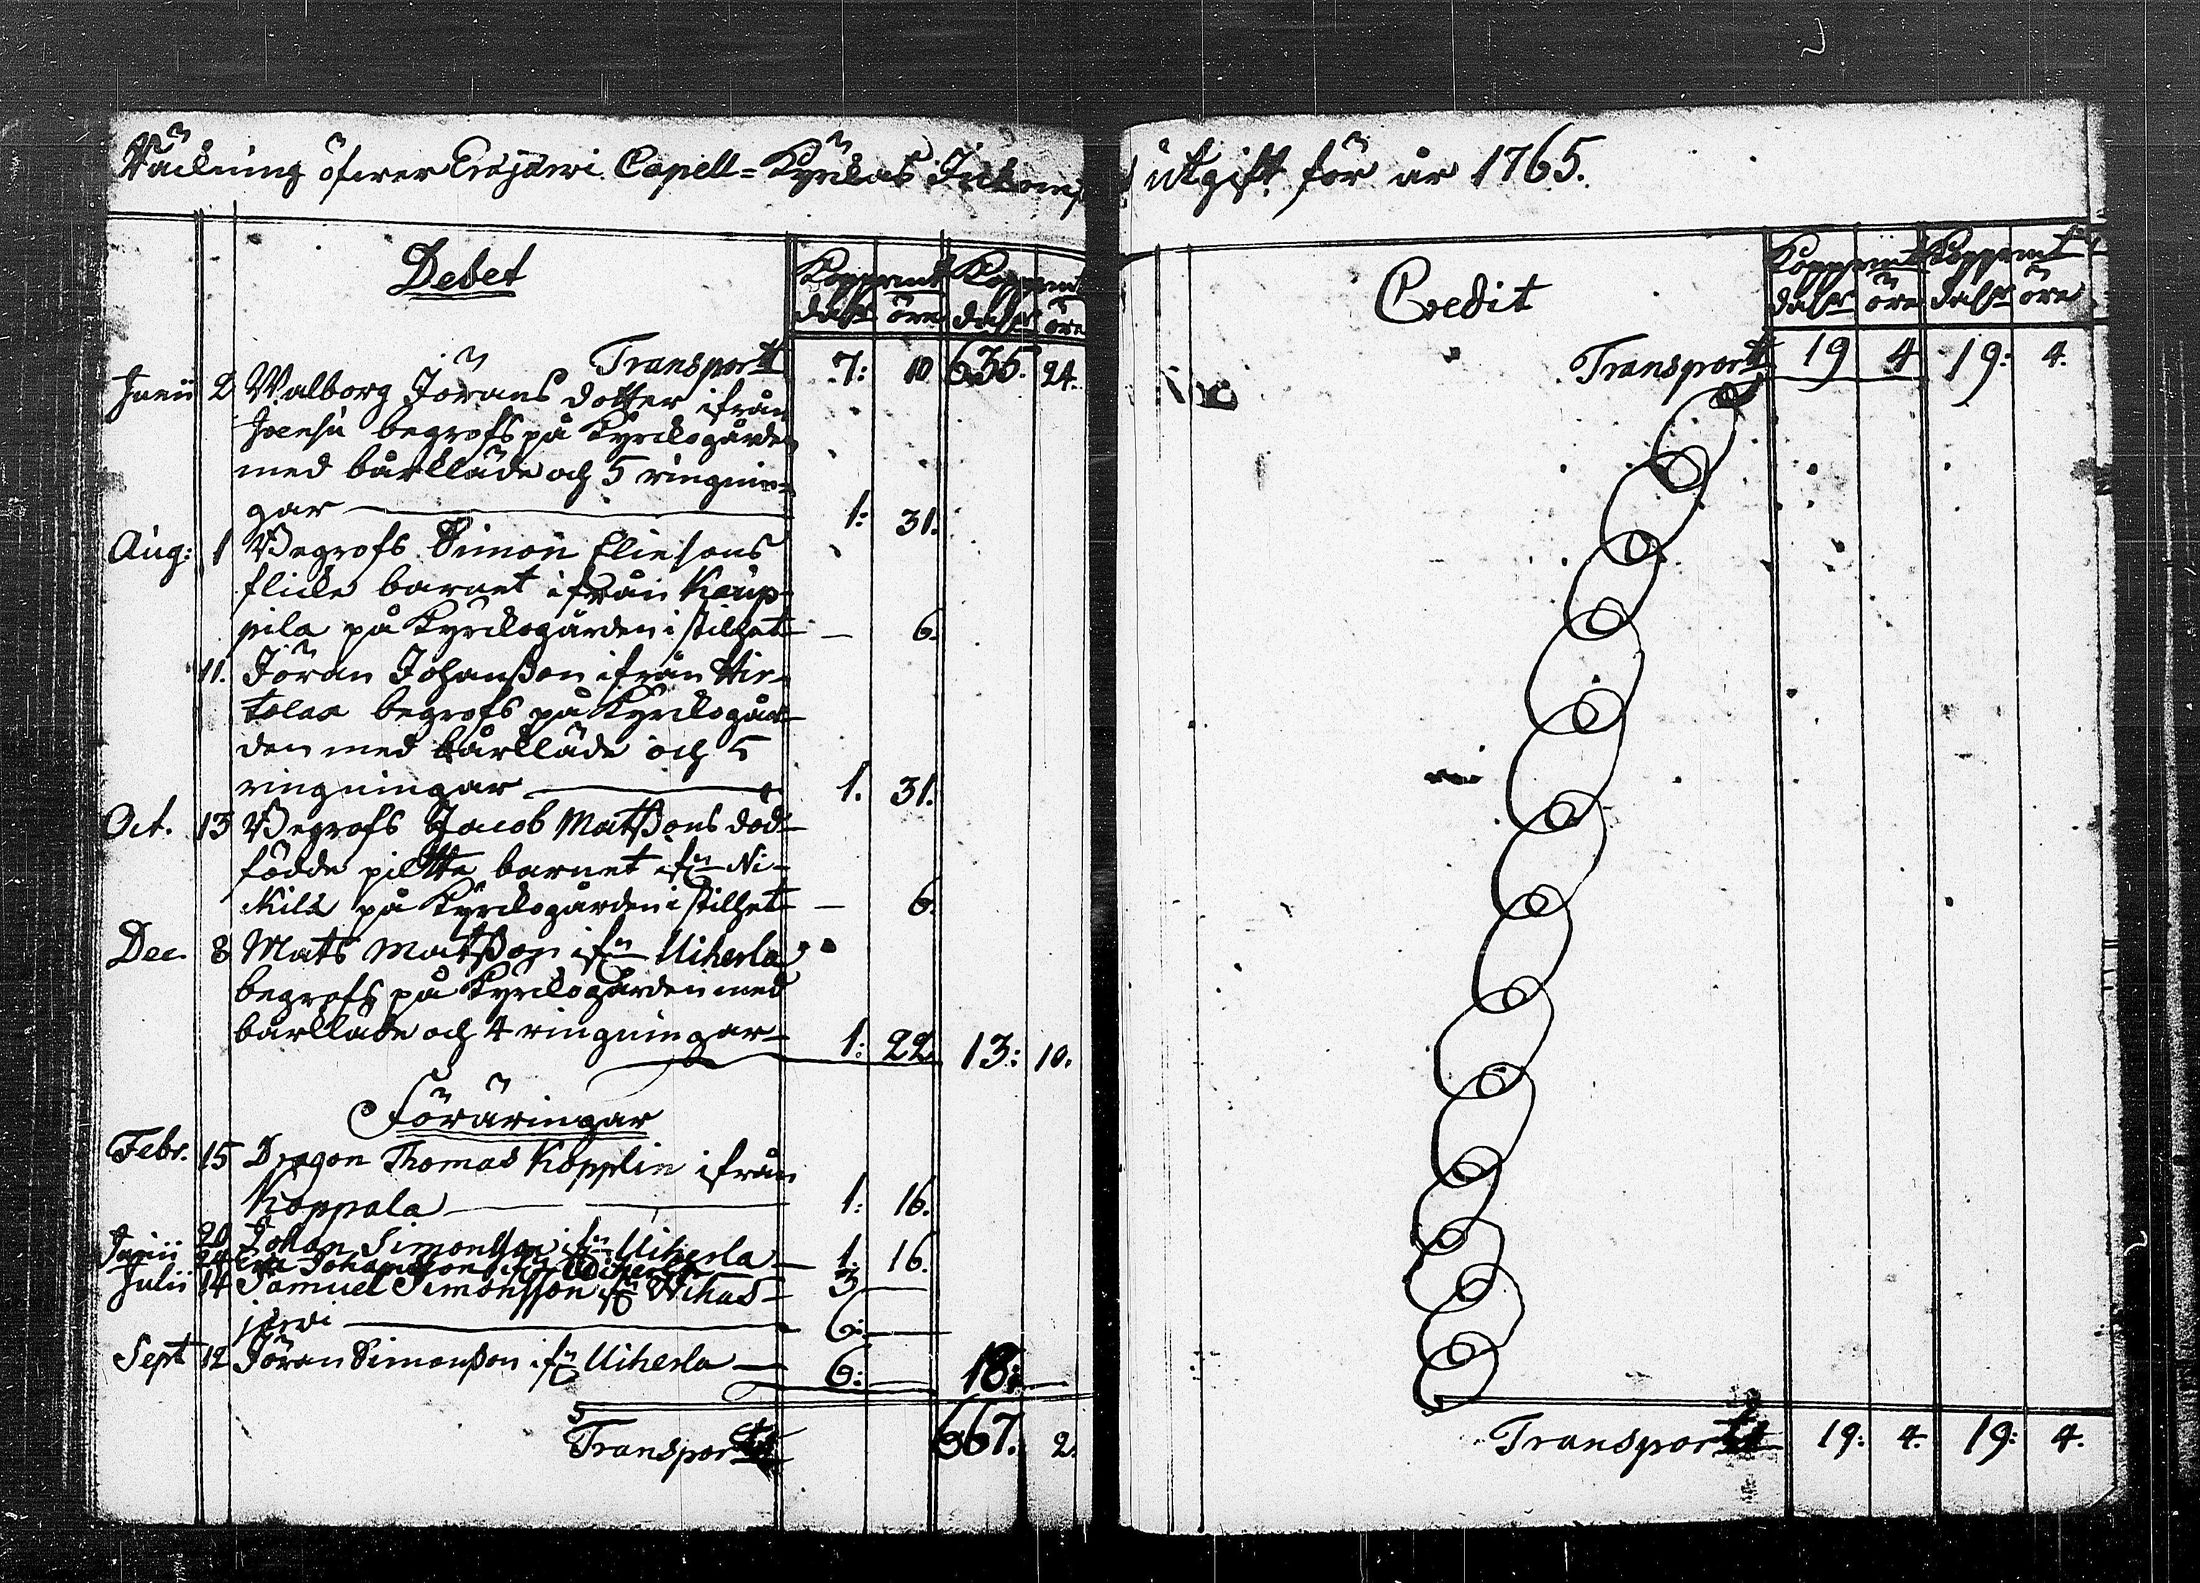 Räckning öfwer Eräjärwi Capell=Kyrckas Inkomst
Debet
Kopprmt Kopprmt
dalr öre dalr öre
Transport 7: 10 635. 24.
Junii 2 Walborg Jörans dotter ifrån
Joensu begrofs på Kyrckogården
med bårkläde och 5 ringnin-
gar — 1: 31.
Aug: 1 Begrofs Simon Eliesons
flicke barnet ifrån Kaup-
pila på Kyrckogården i stilhet — 6.
11. Jöran Johanßon ifrån Wir-
tolaa begrofs på Kyrckogår-
den med bårkläde och 5
ringningar — 1. 31.
Oct. 13 Begrofs Jacob Matßons död-
födde piltte barnet ifn Ni-
kilä på Kyrckogården i stilhet — 6.
Dec. 8 Mats Matßon ifn Uiherla
begrofs på Kyrckogården med
bårkläde och 4 ringningar — 1: 22 13: 10.
Föräringar
Febr. 15 Dragon Thomas Kopplin ifrån
Koppala — 1: 16.
Junii 20 Johan Simonsson ifn Uiherla — 1: 16.
24 Johansson Uiherla 3 —
Julii 14 Samuel Simonsson ifn Wihas-
järwi — 6: —
Sept 12 Jöran Simonßon ifn Uiherla — 6: — 18: —
Transport 667. 2.
utgift för år 1765.
Credit
Kopprmt Kopprmt
dalr öre dalr öre
Transport 19 4 19: 4.
Transport 19: 4. 19: 4.